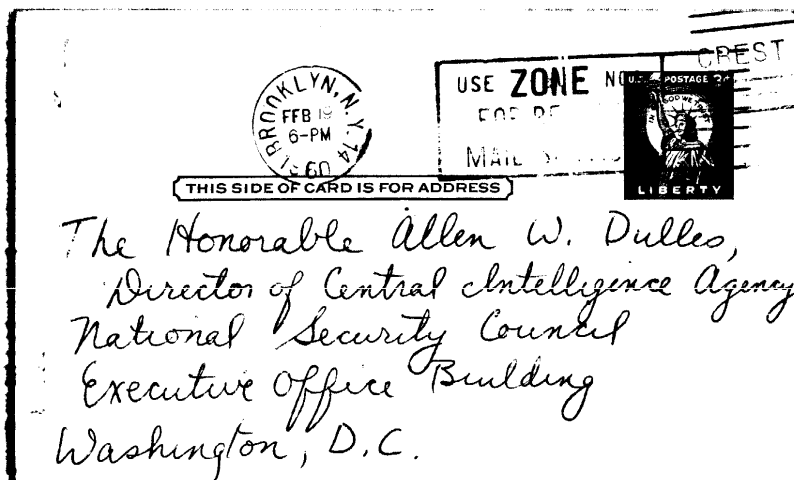 CREST
BROOKLYN, N.Y. 14
FEB 19
6-PM
60
USE ZONE NO
FOR
MAIL
U.S. POSTAGE 3¢
IN GOD WE TRUST
LIBERTY
THIS SIDE OF CARD IS FOR ADDRESS
The Honorable Allen W. Dulles,
Director of Central Intelligence Agency
National Security Council
Executive Office Building
Washington, D.C.